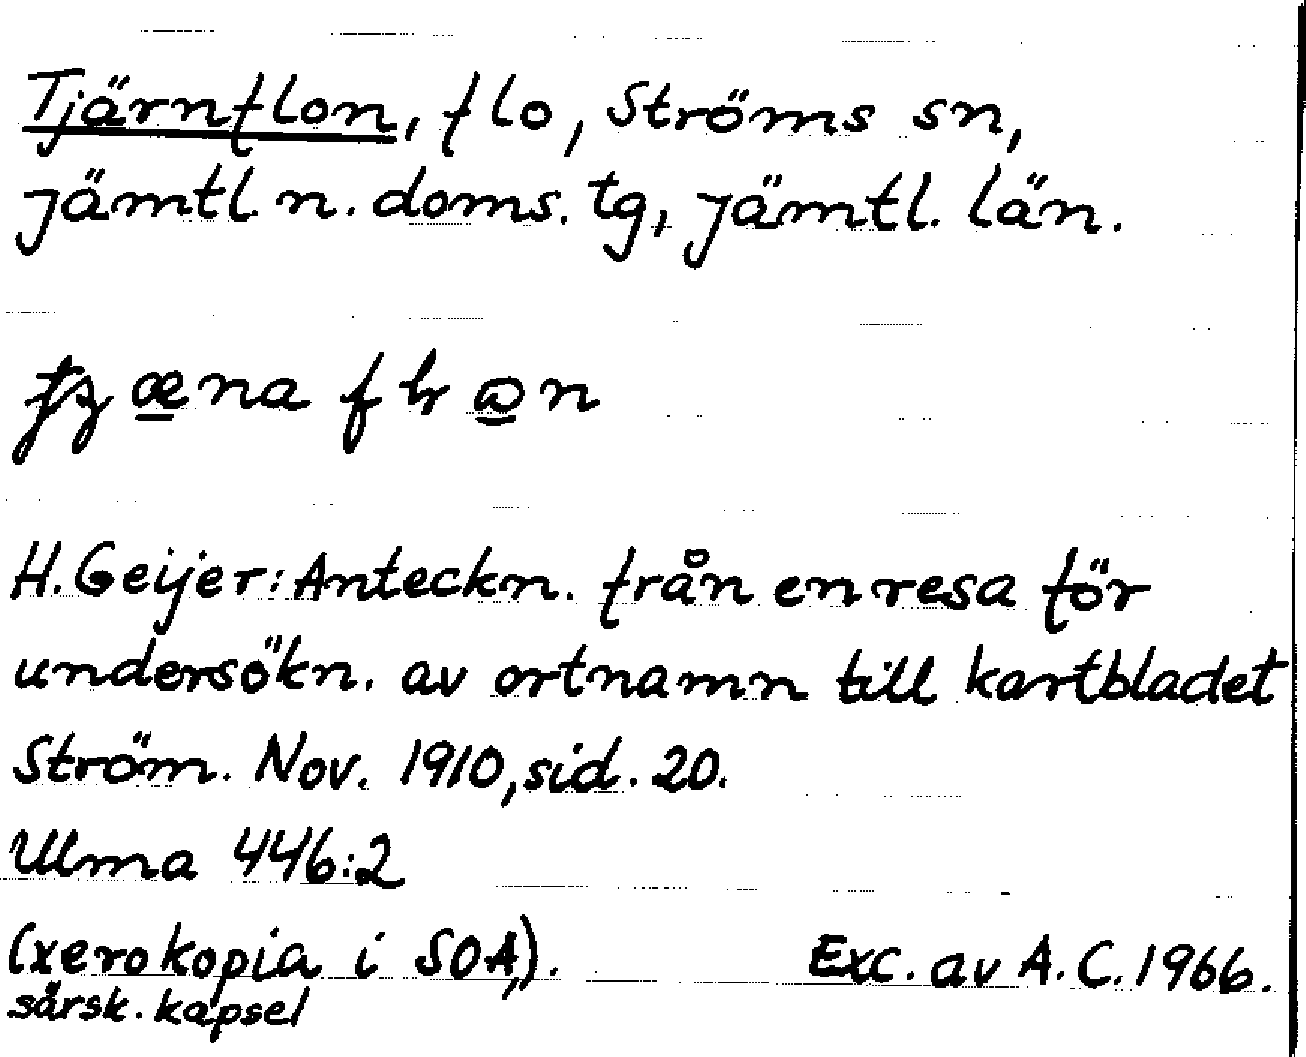 Tjärnflon, flo, Ströms sn,
Jämtl. n. doms. tg, Jämtl. län.
H. Geijer: Anteckn. från en resa för
undersökn. av ortnamn till kartbladet
Ström. Nov. 1910, sid. 20.
Ulma 446:2
(xerokopia i SOA,). Exc. av A. C. 1966.
särsk. kapsel